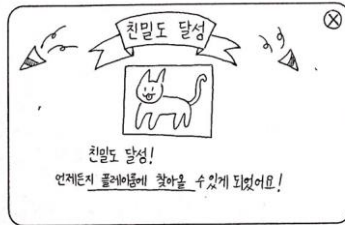 친밀도 달성
친밀도 달성!
언제든지 플레이룸에 찾아올 수 있게 되었어요!